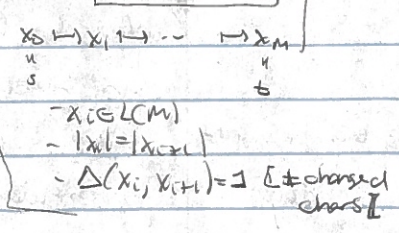 x₀ ↦ x₁ ↦ ·· ↦ x_M
" "
s t
- xᵢ ∈ L(M)
- |xᵢ| = |xᵢ₊₁|
- Δ(xᵢ, xᵢ₊₁) = 1 [# changed
chars]